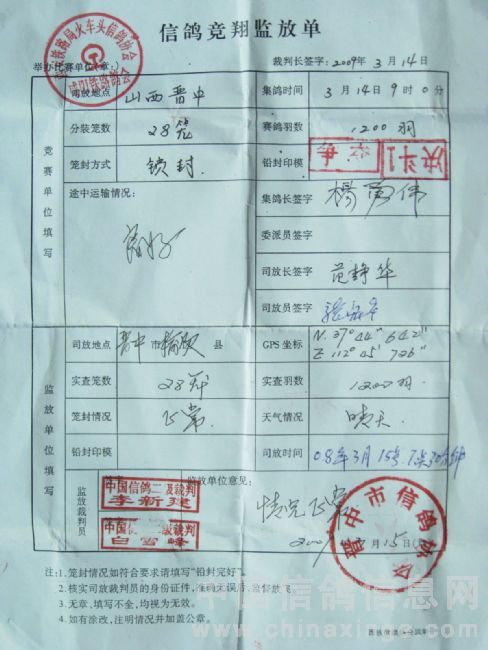 信鸽竞翔监放单
举办比赛单位(章:)
裁判长签字: 2009年 3月 14日
竞赛单位填写
司放地点 山西晋中 集鸽时间 3月14日9时0分
分装笼数 28笼 赛鸽羽数 1200羽
笼封方式 锁封 铅封印模
途中运输情况: 良好
集鸽长签字
委派员签字
司放长签字 范静华
司放员签字
监放单位填写
司放地点 晋中市榆次县 GPS 坐标 N. 37° 44" 642"
E 112° 45' 726"
实查笼数 28 实查羽数 1200羽
笼封情况 正常. 天气情况 晴天
铅封印模 司放时间 08年3月15号.7点30分钟
监放裁判员
中国信鸽二级裁判
李新建
中国信鸽二级裁判
白雪峰
监放单位意见:
情况正常
15日(章)
晋中市信鸽协会
注:1. 笼封情况如符合要求请填写“铅封完好”。
2. 核实司放裁判员的身份证件,准确无误后,监督放飞。
3. 无章、填写不全,均视为无效。
4. 如有涂改,注明情况并加盖公章。
中国信鸽信息网
www.chinaxinge.com